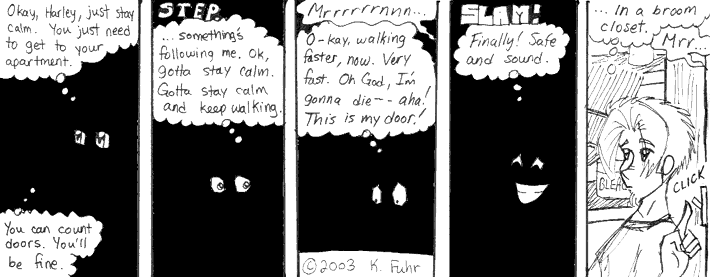 Okay, Harley, just stay
calm. You just need
to get to your
apartment.
You can count
doors. You'll
be fine.
STEP.
...something's
following me. Ok,
gotta stay calm.
Gotta stay calm
and keep walking.
Mrrrrrrnnn...
O-kay, walking
faster, now. Very
fast. Oh God, I'm
gonna die-- aha!
This is my door!
©2003 K. Fuhr
SLAM!
Finally! Safe
and sound.
... In a broom
closet.
Mrr...
BLEA
CLICK